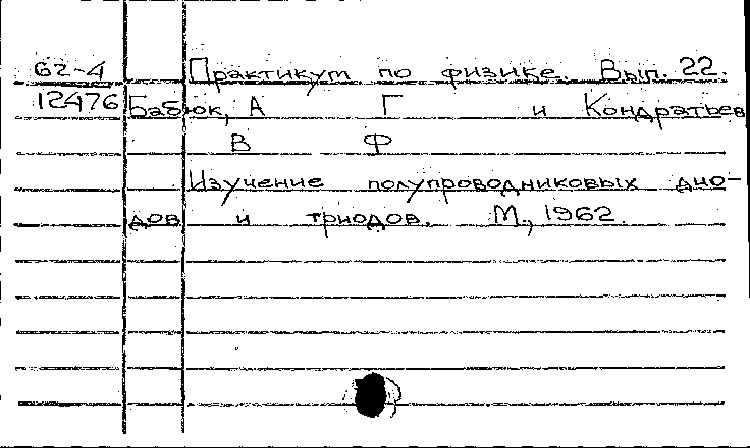 62-4 Практикум по физике. Вып. 22.
12476 Бабюк, А Г и Кондратьев
В Ф
Изучение полупроводниковых дио-
дов и триодов. М., 1962.